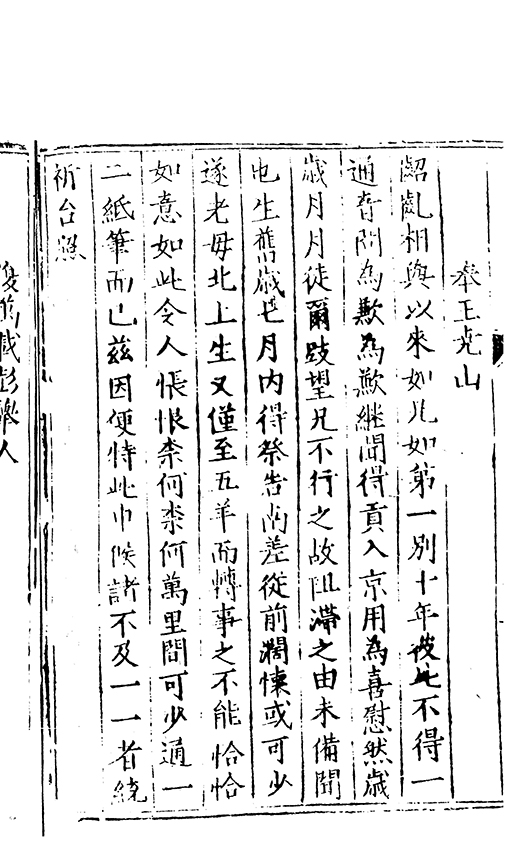 奉王尭山
齠齓相與以來如兄如第一別十年彼此不得一
通音問為歉為歉継聞得貢入京用為喜慰然歳
歳月月徒爾跂望兄不行之故阻滯之由未備聞
也生舊歳七月内得祭告南差從前濶悚或可少
遂老毋北上生又僅至五羊而轉事之不能恰恰
如意如此令人悵恨柰何柰何萬里間可少通一
二紙筆而已兹因便特此巾候諸不及一一者統
祈台照